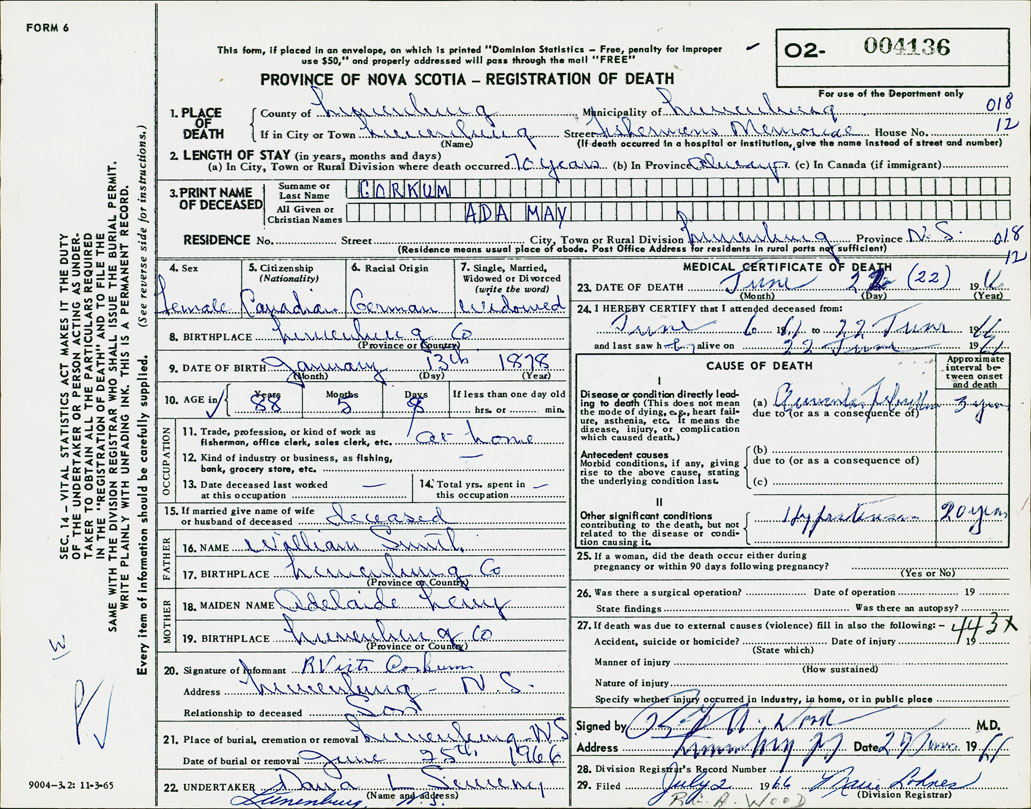 FORM 6
This form, if placed in an envelope, on which is printed "Dominion Statistics – Free, penalty for improper
use $50," and properly addressed will pass through the mail "FREE"
O2- 004136
For use of the Department only
PROVINCE OF NOVA SCOTIA – REGISTRATION OF DEATH
1. PLACE OF DEATH
County of Lunenburg Municipality of Lunenburg 018
If in City or Town Lunenburg Street Fishermens Memorial House No. 12
(Name) (If death occurred in a hospital or institution, give the name instead of street and number)
2. LENGTH OF STAY (in years, months and days)
(a) In City, Town or Rural Division where death occurred 70 years (b) In Province Always (c) In Canada (if immigrant)
3. PRINT NAME OF DECEASED
Surname or Last Name CORKUM
All Given or Christian Names ADA MAY
RESIDENCE No. Street City, Town or Rural Division Lunenburg Province N.S. 018
(Residence means usual place of abode. Post Office Address for residents in rural parts not sufficient) 12
4. Sex Female
5. Citizenship (Nationality) Canadian
6. Racial Origin German
7. Single, Married, Widowed or Divorced (write the word) Widowed
8. BIRTHPLACE Lunenburg Co
(Province or Country)
9. DATE OF BIRTH January 13th 1878
(Month) (Day) (Year)
10. AGE in Years 88 Months 5 Days If less than one day old hrs. or min.
OCCUPATION
11. Trade, profession, or kind of work as fisherman, office clerk, sales clerk, etc. at home
12. Kind of industry or business, as fishing, bank, grocery store, etc. —
13. Date deceased last worked at this occupation —
14. Total yrs. spent in this occupation —
15. If married give name of wife or husband of deceased Deceased
FATHER
16. NAME William Smith
17. BIRTHPLACE Lunenburg Co
(Province or Country)
MOTHER
18. MAIDEN NAME Adelaide
19. BIRTHPLACE Lunenburg Co
(Province or Country)
20. Signature of Informant Corkum
Address Lunenburg – N.S.
Relationship to deceased Son
21. Place of burial, cremation or removal Lunenburg N.S
Date of burial or removal June 25th 1966
22. UNDERTAKER
(Name and address)
Lunenburg N.S.
MEDICAL CERTIFICATE OF DEATH
23. DATE OF DEATH June (22) 19
(Month) (Day) (Year)
24. I HEREBY CERTIFY that I attended deceased from:
June 6 to 22 June 19
and last saw her alive on 22 June 19
CAUSE OF DEATH
Approximate interval between onset and death
I
Disease or condition directly leading to death (This does not mean the mode of dying, e.g., heart failure, asthenia, etc. It means the disease, injury, or complication which caused death.)
(a) 3 yrs
due to (or as a consequence of)
Antecedent causes
Morbid conditions, if any, giving rise to the above cause, stating the underlying condition last.
(b)
due to (or as a consequence of)
(c)
II
Other significant conditions contributing to the death, but not related to the disease or condition causing it.
Hypertension 20 yrs
25. If a woman, did the death occur either during pregnancy or within 90 days following pregnancy?
(Yes or No)
26. Was there a surgical operation? Date of operation 19
State findings Was there an autopsy?
27. If death was due to external causes (violence) fill in also the following: – 443X
Accident, suicide or homicide? Date of injury 19
(State which)
Manner of injury
(How sustained)
Nature of injury
Specify whether injury occurred in Industry, in home, or in public place
Signed by M.D.
Address Date 19
28. Division Registrar's Record Number
29. Filed July 2 1966 Marie Lohnes
(Division Registrar)
A. WOOD
SEC. 14 – VITAL STATISTICS ACT MAKES IT THE DUTY
OF THE UNDERTAKER OR PERSON ACTING AS UNDER-
TAKER TO OBTAIN ALL THE PARTICULARS REQUIRED
IN THE "REGISTRATION OF DEATH" AND TO FILE THE
SAME WITH THE DIVISION REGISTRAR WHO SHALL ISSUE THE BURIAL PERMIT.
WRITE PLAINLY WITH UNFADING INK. THIS IS A PERMANENT RECORD.
Every item of information should be carefully supplied. (See reverse side for instructions.)
9004-3.2: 11-3-65